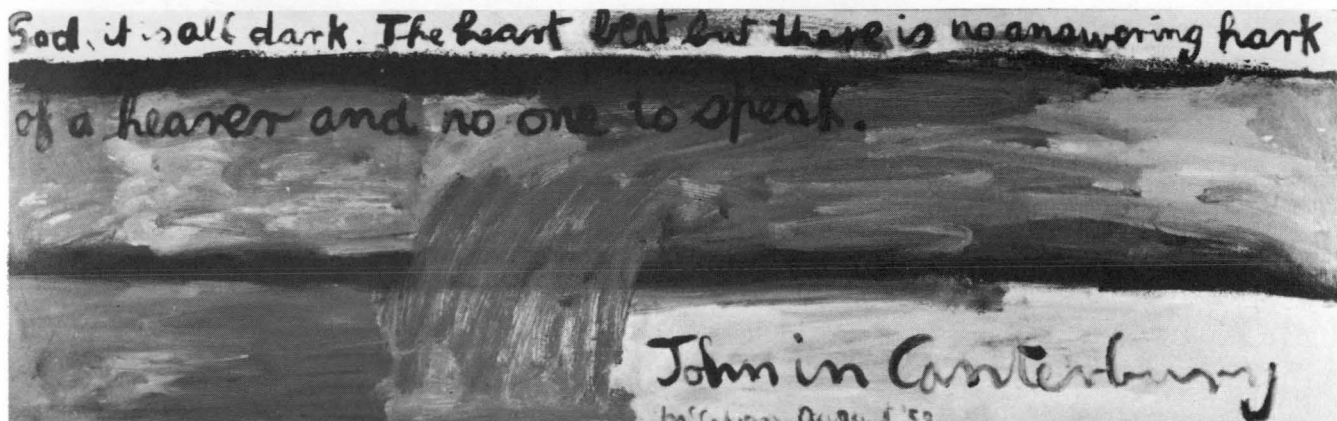 God, it is all dark. The heart beat but there is no answering hark
of a hearer and no one to speak.
John in Canterbury
McCahon August '59